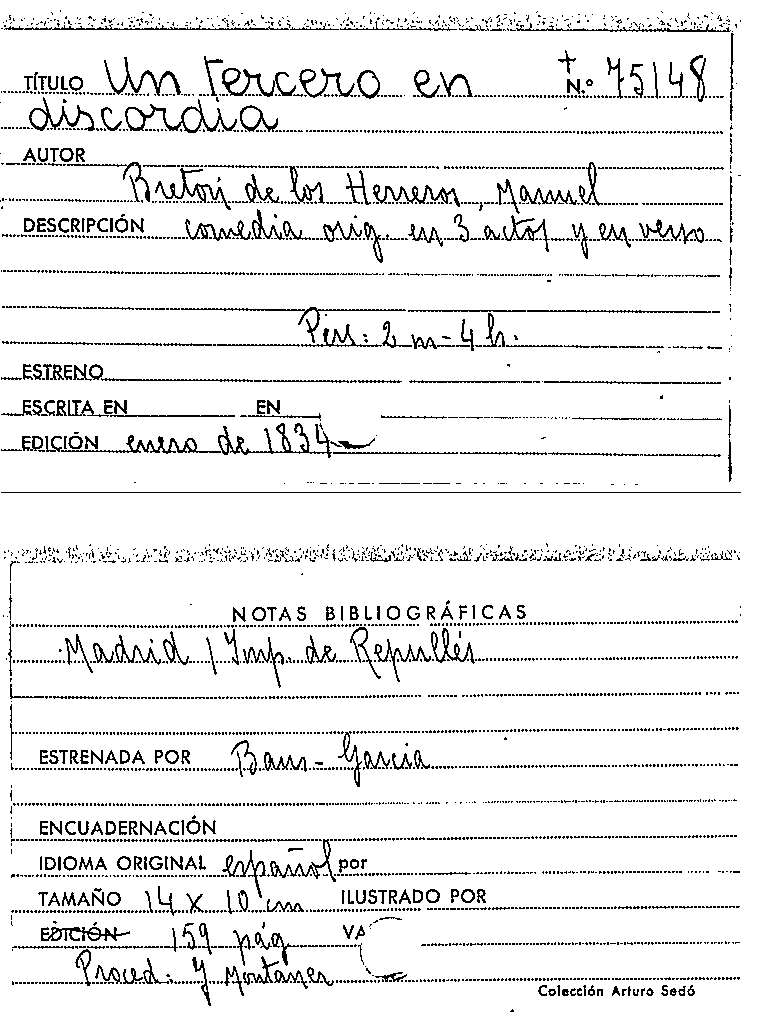 TÍTULO Un tercero en + N.º 75148
discordia
AUTOR
Bretón de los Herreros, Manuel
DESCRIPCIÓN comedia orig. en 3 actos y en verso
Pers: 2 m - 4 h.
ESTRENO
ESCRITA EN EN
EDICIÓN enero de 1834
NOTAS BIBLIOGRÁFICAS
Madrid / Imp. de Repullés
ESTRENADA POR Baus - García
ENCUADERNACIÓN
IDIOMA ORIGINAL español por
TAMAÑO 14 x 10 cm ILUSTRADO POR
EDICIÓN 159 pág VA
Proced: Montaner
Colección Arturo Sedó